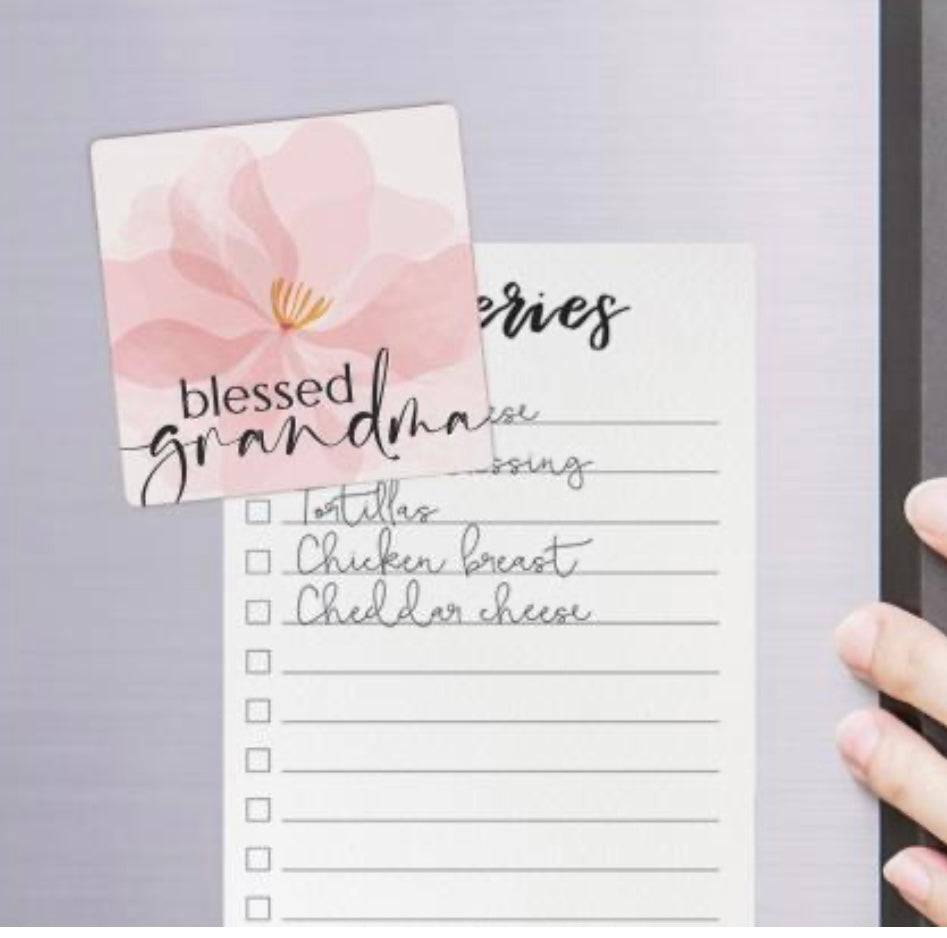 blessed
grandma
eries
ese
ssing
Tortillas
Chicken breast
Cheddar cheese